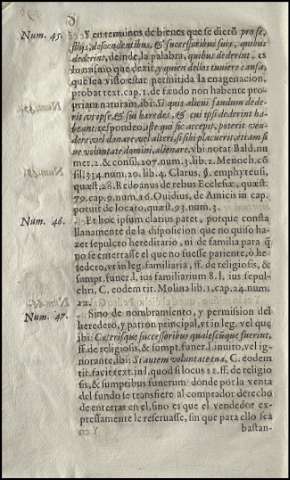 Num. 45. Y en terminos de bienes que se dictũ pro se,
filijs, descendentibus, & successoribus suis, quibus
dederint, deinde la palabra, quibus dederint, es
lo mismo que dezir, y quien dellos tuuiere causa,
que sea visto estar permitida la enagenacion,
probat text. cap. 1. de feudo non habente pro-
priam naturam, ibi: Si quis alicui faudum dede-
rit vt ipse, & sui haredes, & cui ipsi dederint ha-
beant: respondeo, iste qui sic accepit, poterit ven-
dere, vel donare, vel alteri, si sibi placuerit, etiam si-
ne voluntate domini, alienare, vbi notat Bald. nu-
mer. 2. & consil. 207. num. 3. lib. 2. Menoch. cõ
sil. 314. num. 20. lib. 4. Clarus, §. emphyteusi,
quæst. 28. Redoanus de rebus Ecclesiæ, quæst.
70. cap. 9. num. 16. Ouidus, de Amicis in cap.
potuit de locato, quæst. 93. num. 3.
Num. 46. Et hoc ipsum clarius patet, porque consta
llanamente de la disposicion que no quiso ha-
zer sepulcro hereditario, ni de familia para q̃
no se enterrasse el que no fuesse pariente, ò he-
redero, vt in leg. familiaria, ff. de religiosis, &
sumpt. funer. l. ius familiarum 8. l. ius sepul-
chri, C. eodem tit. Molina lib. 1. cap. 24. num.
Num. 47. Sino de nombramiento, y permission del
heredero, y patron principal, vt in leg. vel que
ibi: Caterosque successores qualescunque fuerint,
ff. de religiosis, & sompt. funer. l. inuito, vel ig-
norante, ibi: Si autem voluntate tua, C. eodem
tit. facit text. in l. quod si locus 12. ff. de religio
sis, & sumptibus funerum: donde por la venta
del fundo se transfiere al comprador derecho
de enterrar en el, sino es que el vendedor ex-
pressamente le reseruasse, sin que para ello sea
bastan-